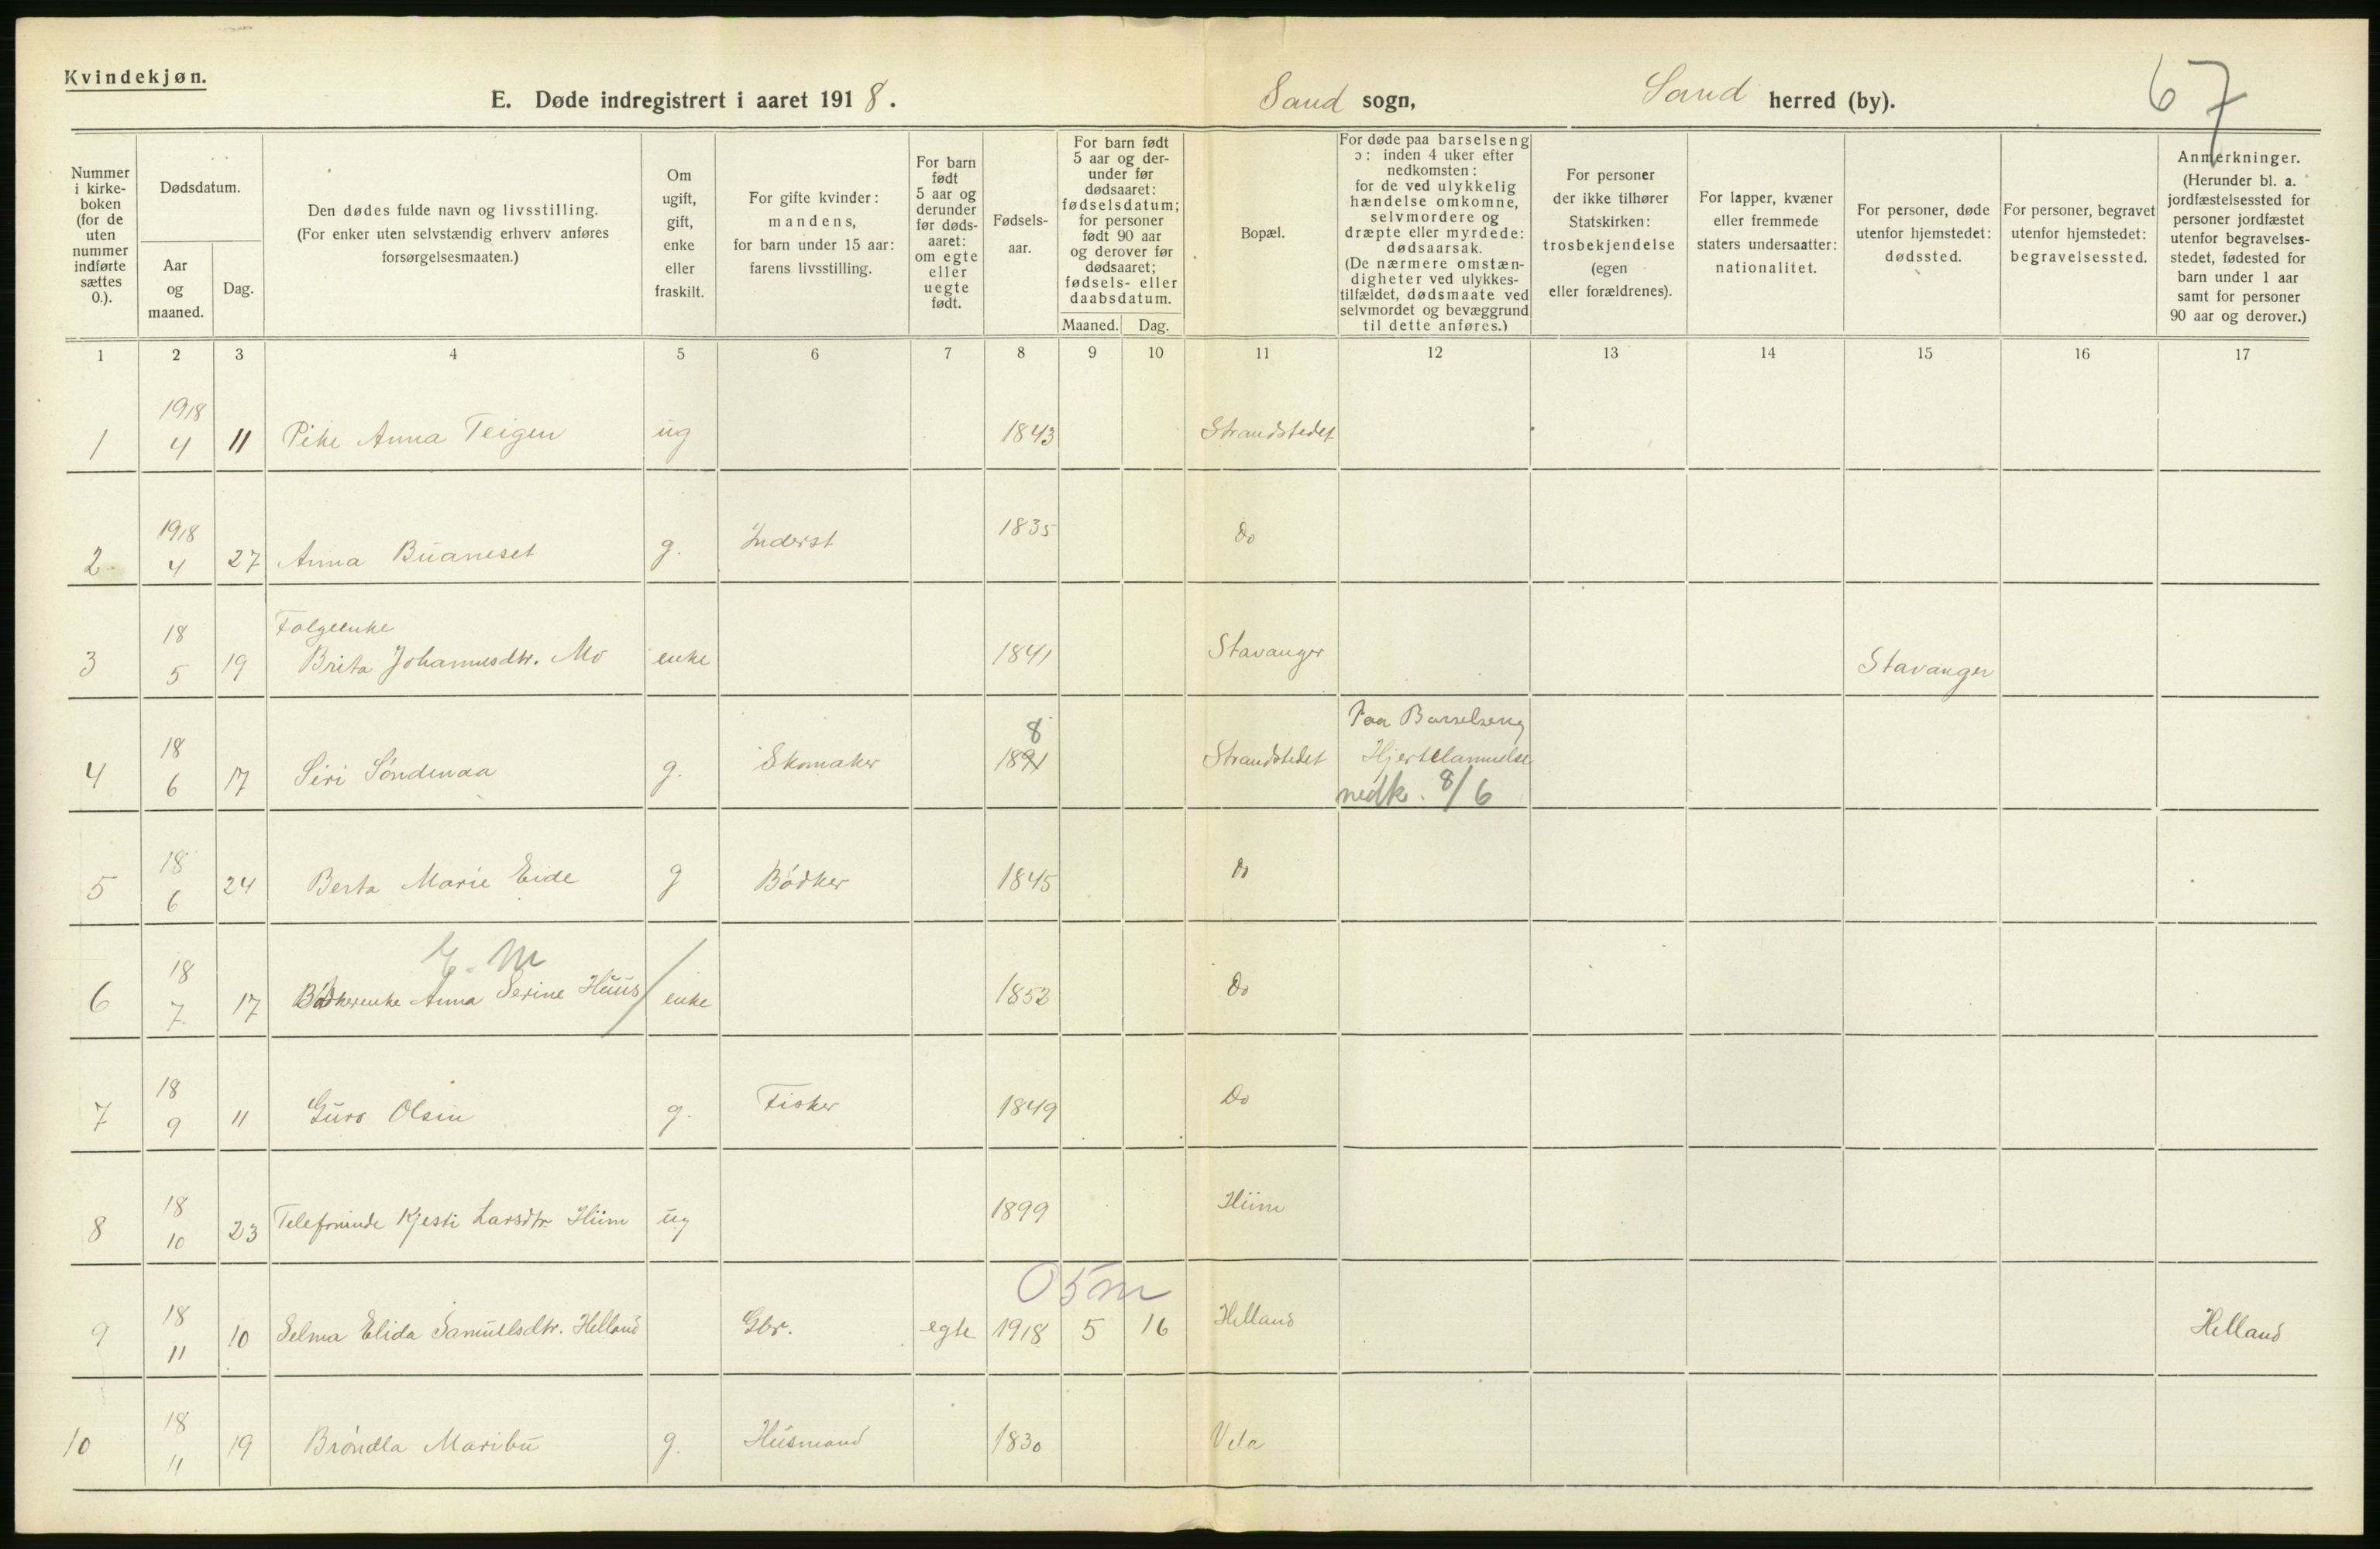 Kvindekjøn.
E. Døde indregistrert i aaret 1918.
Sand sogn,
Sand herred (by).
67
Nummer i kirke-boken (for de uten nummer indførte sættes 0.).
Dødsdatum.
Aar og maaned.
Dag.
Den dødes fulde navn og livsstilling.
(For enker uten selvstændig erhverv anføres forsørgelsesmaaten.)
Om ugift, gift, enke eller fraskilt.
For gifte kvinder: mandens, for barn under 15 aar: farens livsstilling.
For barn født 5 aar og derunder før døds-aaret: om egte eller uegte født.
Fødsels-aar.
For barn født 5 aar og der-under før dødsaaret: fødselsdatum; for personer født 90 aar og derover før dødsaaret; fødsels- eller daabsdatum.
Maaned. Dag.
Bopæl.
For døde paa barselseng ɔ: inden 4 uker efter nedkomsten: for de ved ulykkelig hændelse omkomne, selvmordere og dræpte eller myrdede: dødsaarsak. (De nærmere omstæn-digheter ved ulykkes-tilfældet, dødsmaate ved selvmordet og bevæggrund til dette anføres.)
For personer der ikke tilhører Statskirken: trosbekjendelse (egen eller forældrenes).
For lapper, kvæner eller fremmede staters undersaatter: nationalitet.
For personer, døde utenfor hjemstedet: dødssted.
For personer, begravet utenfor hjemstedet: begravelsessted.
Anmerkninger. (Herunder bl. a. jordfæstelsessted for personer jordfæstet utenfor begravelses-stedet, fødested for barn under 1 aar samt for personer 90 aar og derover.)
1 2 3 4 5 6 7 8 9 10 11 12 13 14 15 16 17
1 1918 4 11 Pike Anna Teigen ug 1843 Strandstedet
2 1918 4 27 Anna Buaneset g. Inderst 1835 Do
3 18 5 19 Folgeenke
Brita Johannesdtr. Mo enke 1841 Stavanger Stavanger
4 18 6 17 Siri Søndenaa g. Skomaker 1891 8 Strandstedet Paa Barselseng
Hjertelammelse
nedk. 8/6
5 18 6 24 Berta Marie Eide g Bødker 1845 Do
6 18 7 17 Bødkerenke Anna Serine Huus enke 1852 Do
E. M
7 18 9 11 Guro Olsen g. Fisker 1849 Do
8 18 10 23 Telefoninde Kjesti Larsdtr Hiim ug 1899 Hiim
0 5 m
9 18 11 10 Selma Elida Samuelsdtr. Helland Gbr. egte 1918 5 16 Helland Helland
10 18 11 19 Brøndla Maribu g. Husmand 1830 Vela